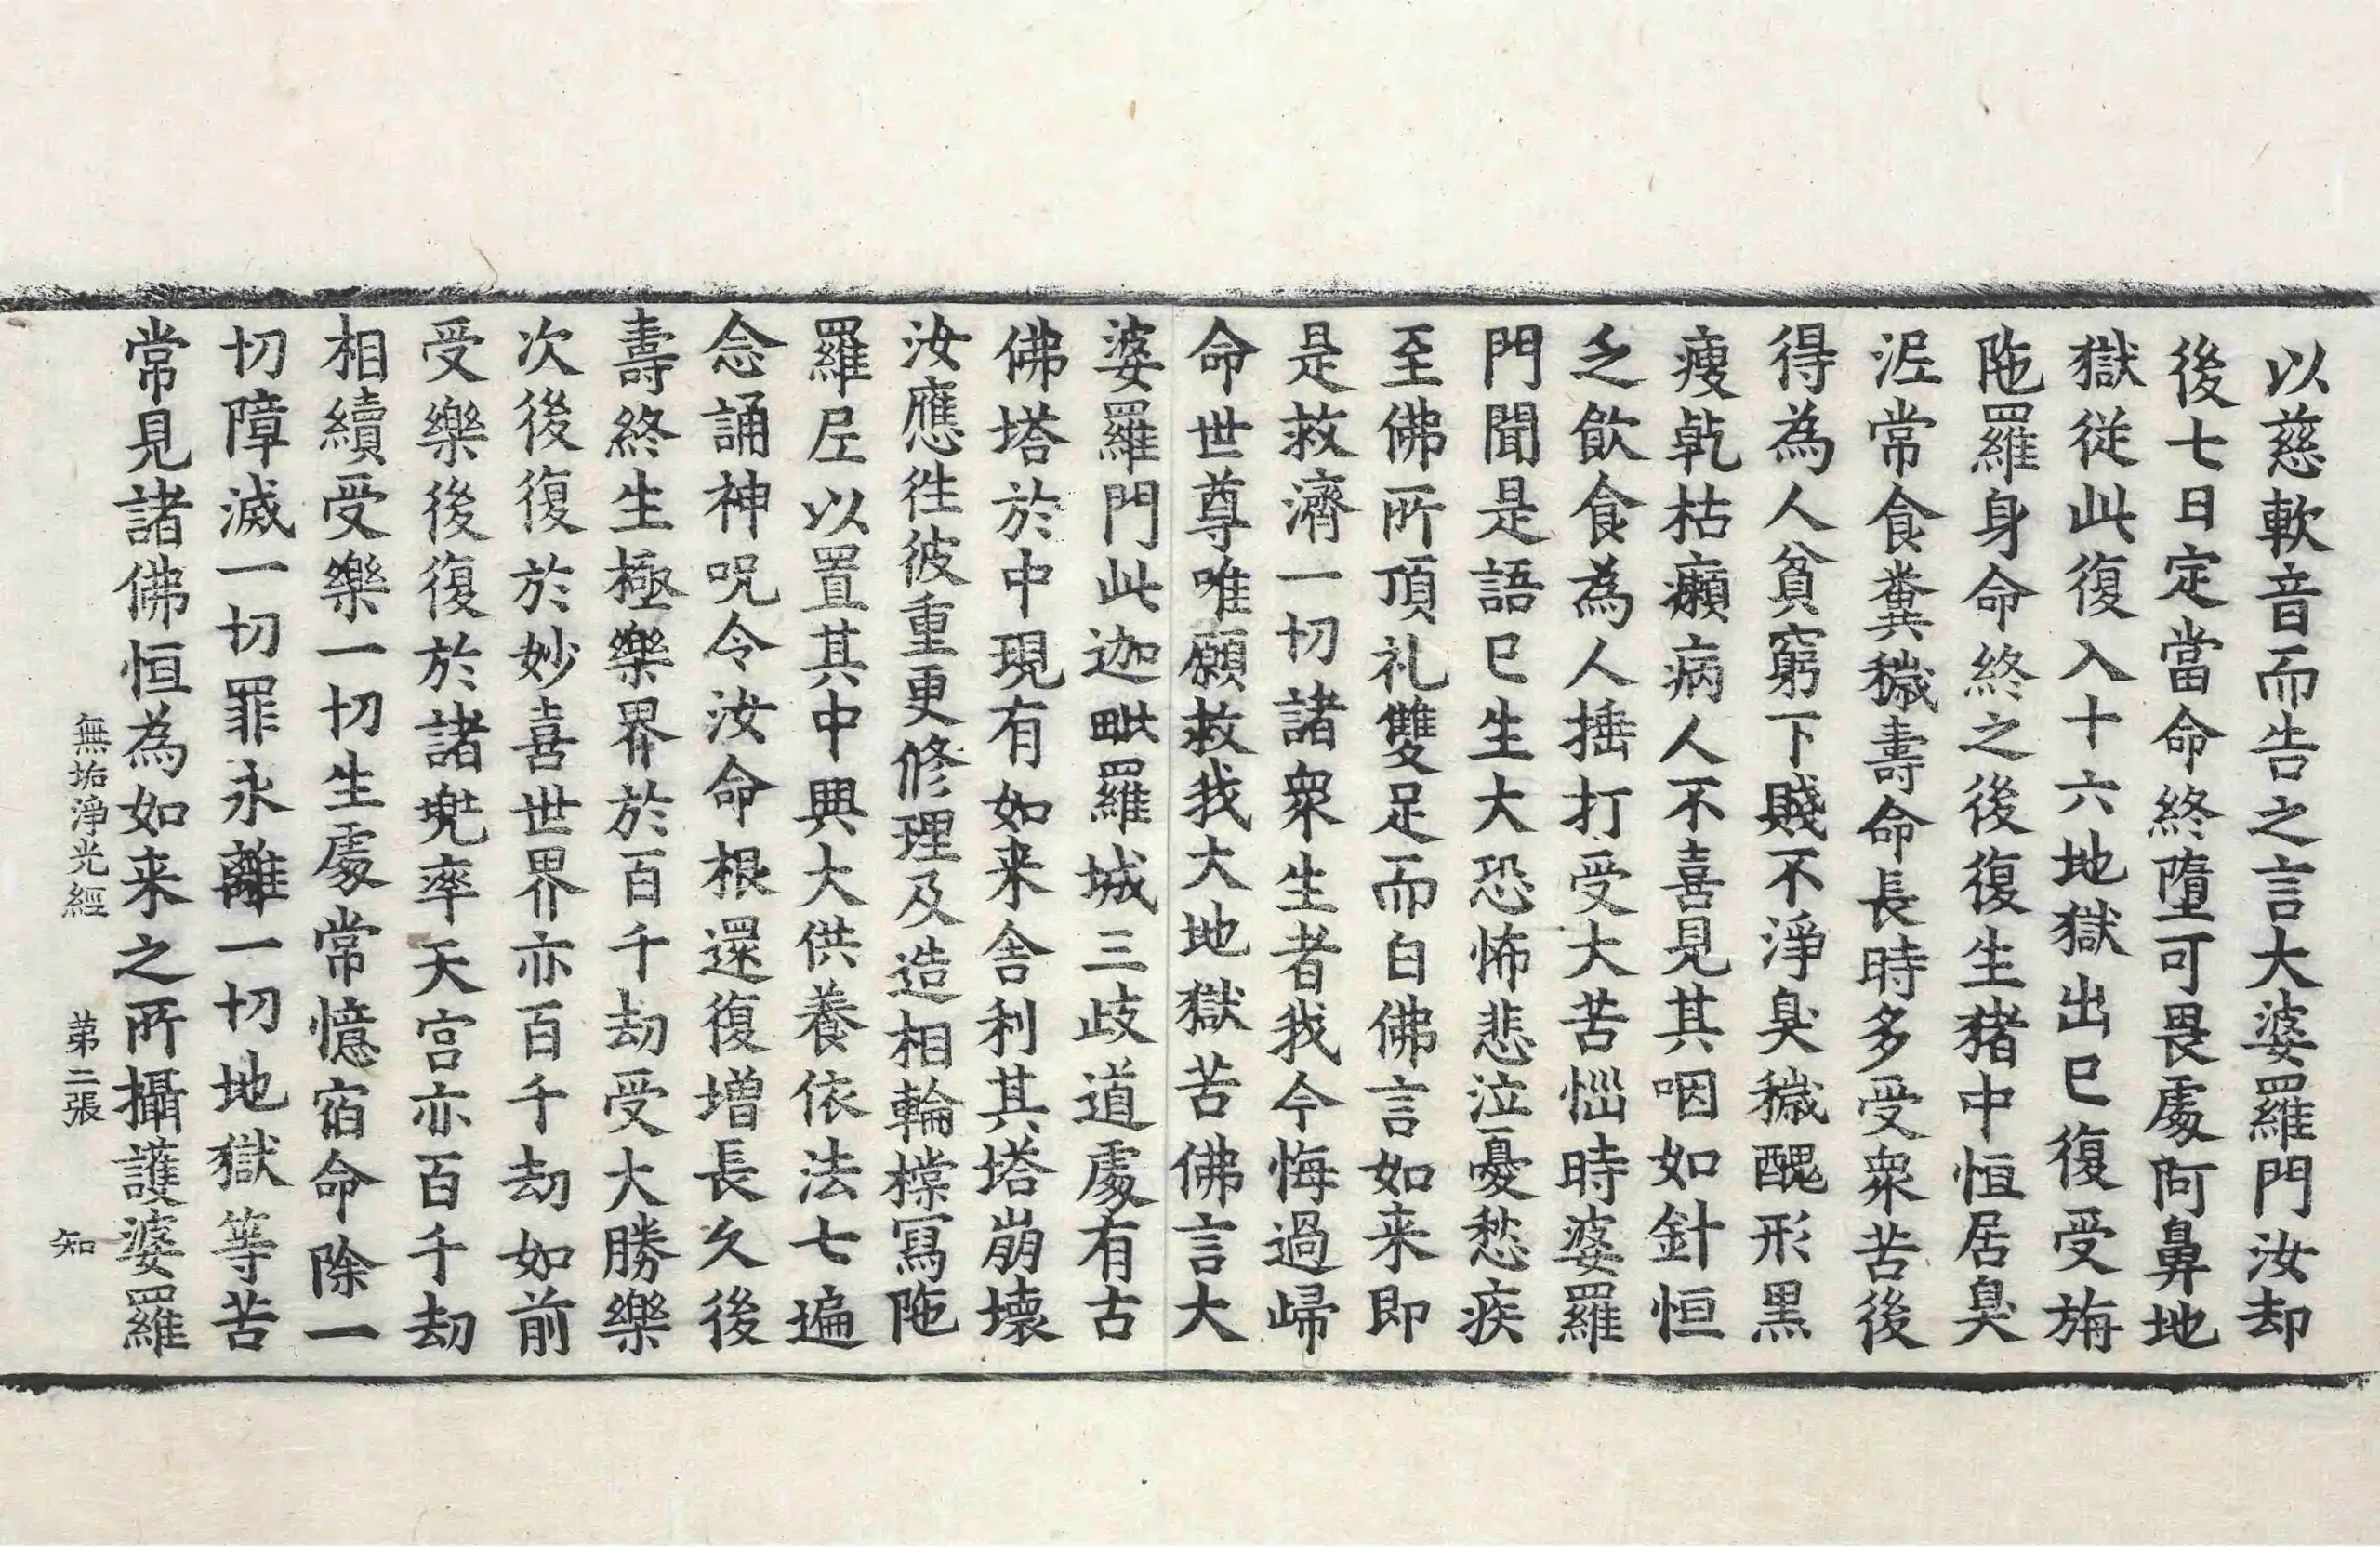 以慈軟音而告之言大婆羅門汝却
後七日定當命終墮可畏處阿鼻地
獄從此復入十六地獄出已復受旃
陁羅身命終之後復生猪中恒居臭
泥常食糞穢壽命長時多受衆苦後
得為人貧窮下賤不淨臭穢醜形黑
瘦乾枯癩病人不喜見其咽如針恒
乏飲食為人捶打受大苦惱時婆羅
門聞是語已生大恐怖悲泣憂愁疾
至佛所頂礼雙足而白佛言如来即
是救濟一切諸衆生者我今悔過歸
命世尊唯願救我大地獄苦佛言大
婆羅門此迦毗羅城三歧道處有古
佛塔於中現有如来舍利其塔崩壞
汝應往彼重更修理及造相輪橖寫陁
羅尼以置其中興大供養依法七遍
念誦神呪令汝命根還復增長久後
壽終生極樂界於百千劫受大勝樂
次後復於妙喜世界亦百千劫如前
受樂後復於諸兠率天宮亦百千劫
相續受樂一切生處常憶宿命除一
切障滅一切罪永離一切地獄等苦
常見諸佛恒為如来之所攝護婆羅
無垢淨光經 第二張 知